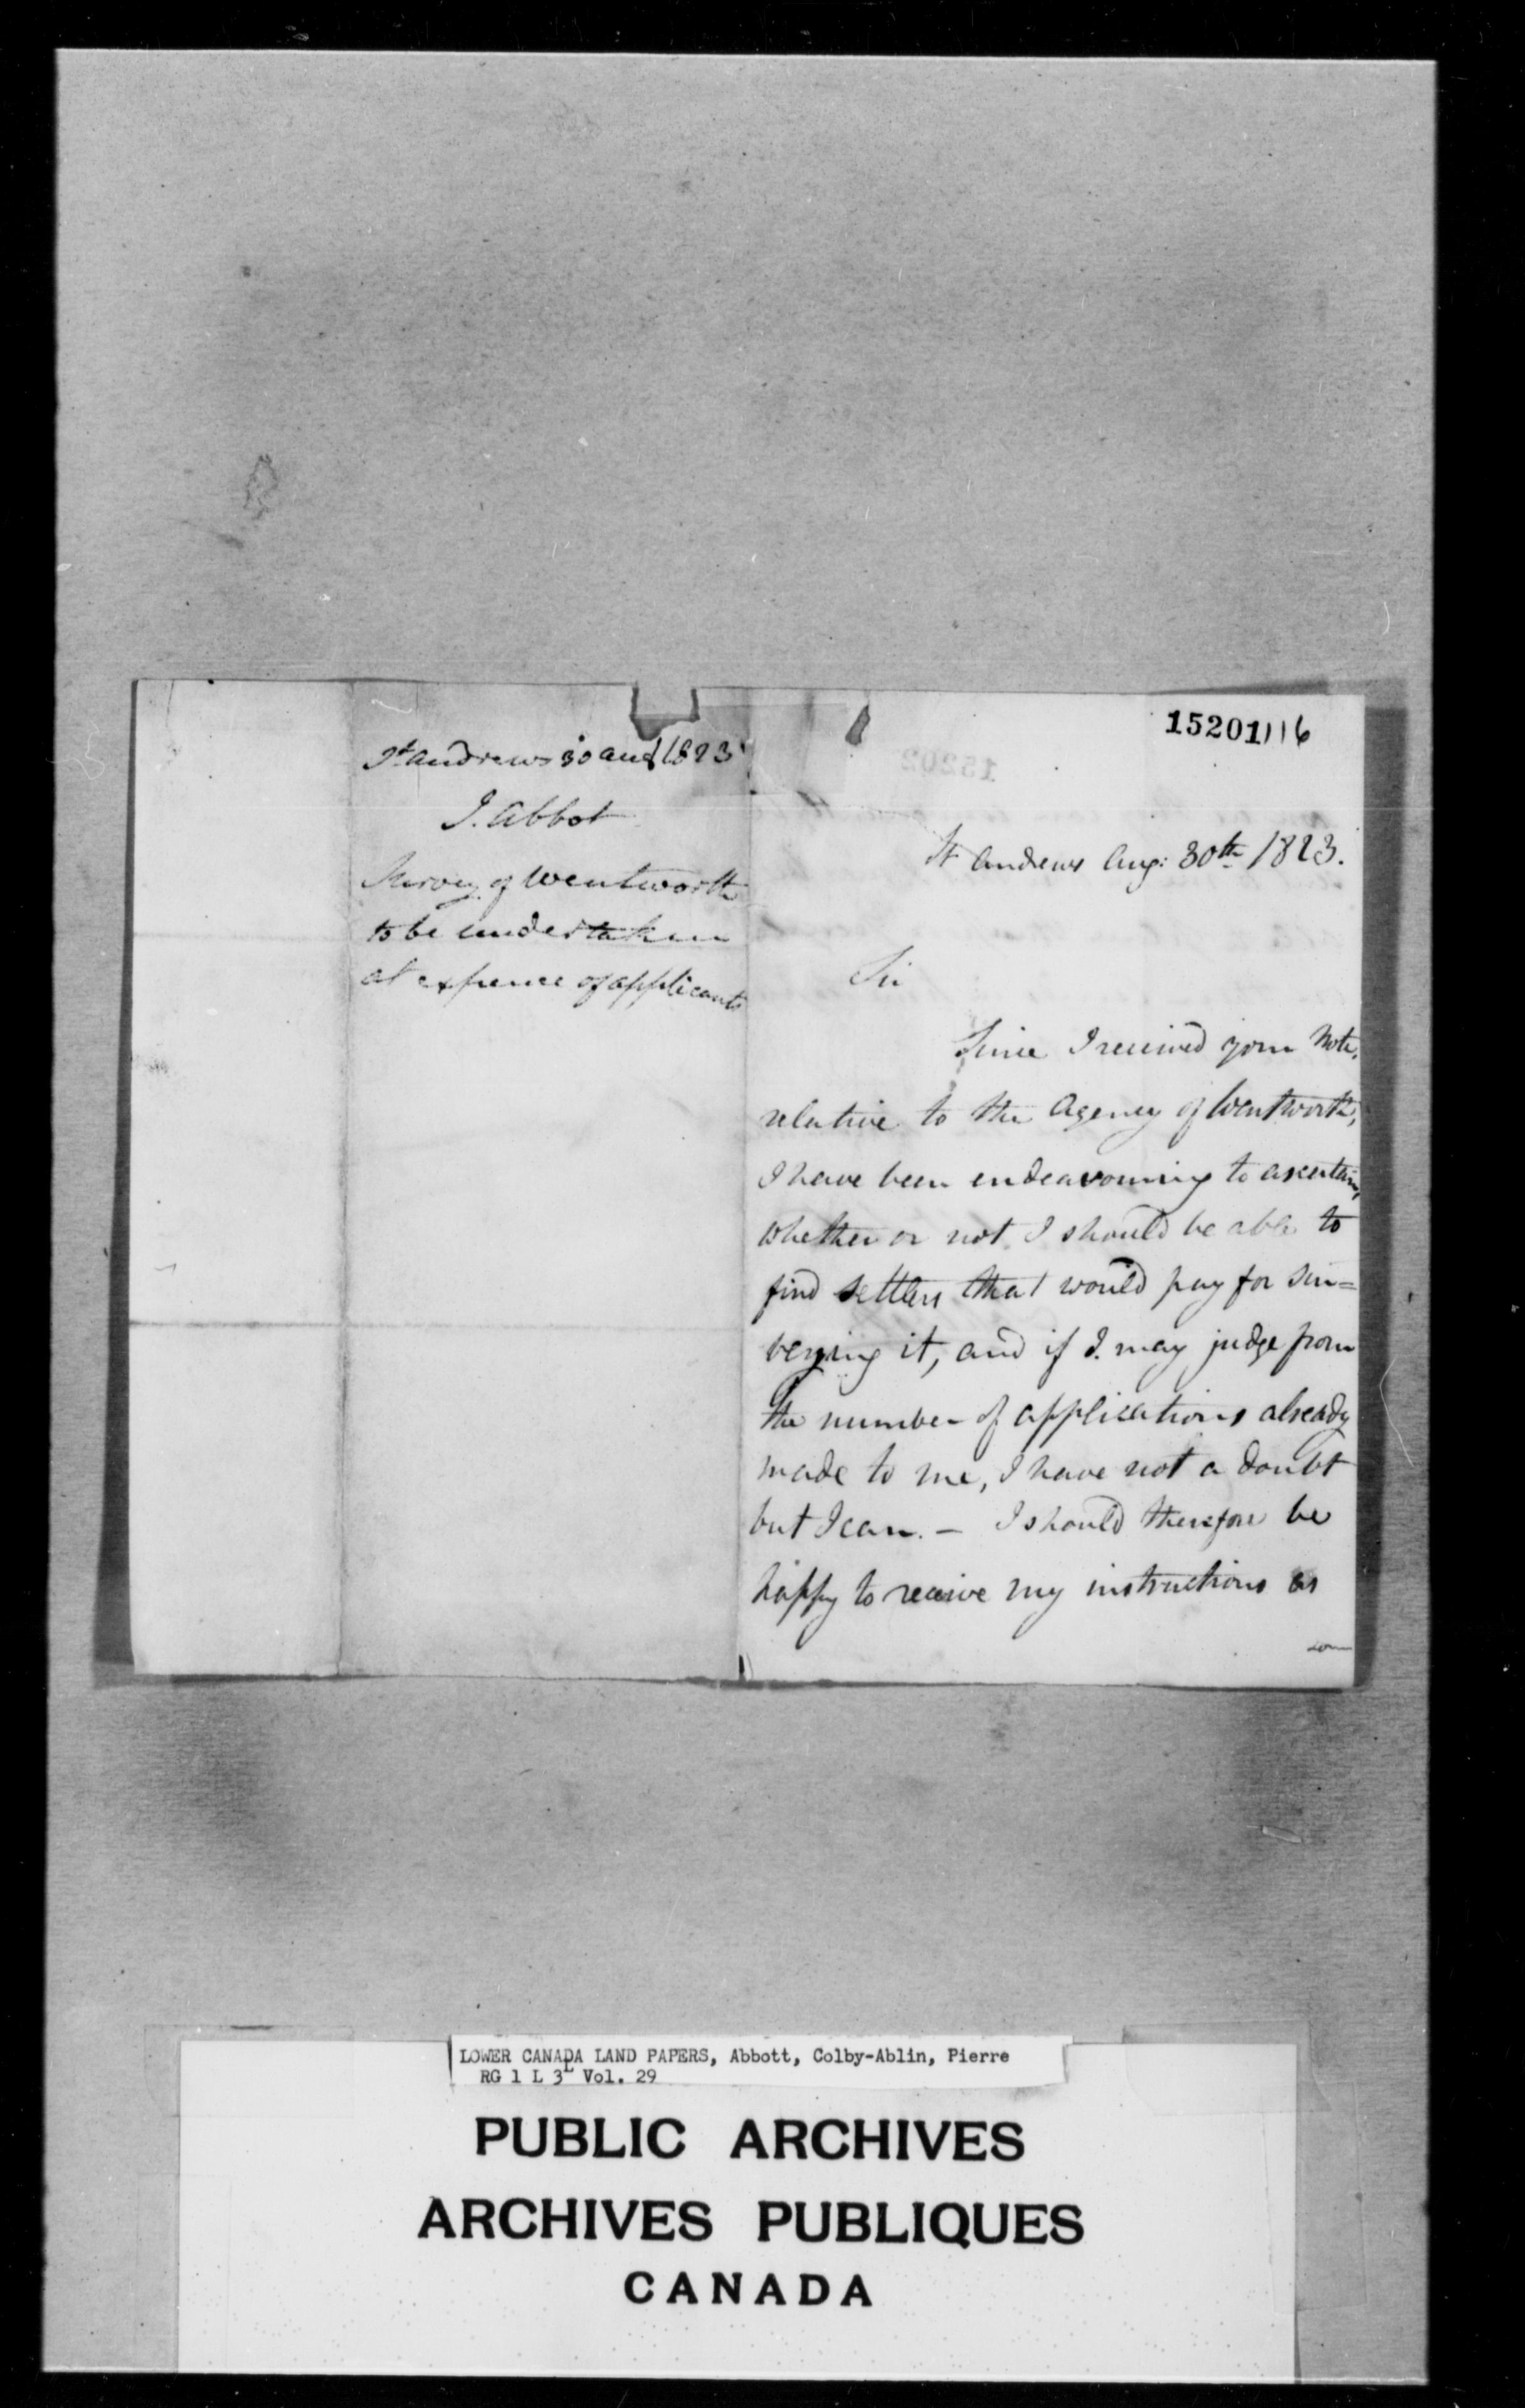 St Andrews 30 Aug 1823
J. Abbot
Survey of Wentworth
to be undertaken
at expence of applicants
15201 116
15202
St Andrews Aug: 30th 1823.
Sir
Since I received your Note,
relative to the Agency of Wentworth,
I have been endeavouring to ascertain,
whether or not I should be able to
find settlers that would pay for sur=
veying it, and if I may judge from
the number of applications already
made to me, I have not a doubt
but I can. — I should therefore be
happy to receive my instructions as
soon
LOWER CANADA LAND PAPERS, Abbott, Colby-Ablin, Pierre
RG 1 L 3L Vol. 29
PUBLIC ARCHIVES
ARCHIVES PUBLIQUES
CANADA